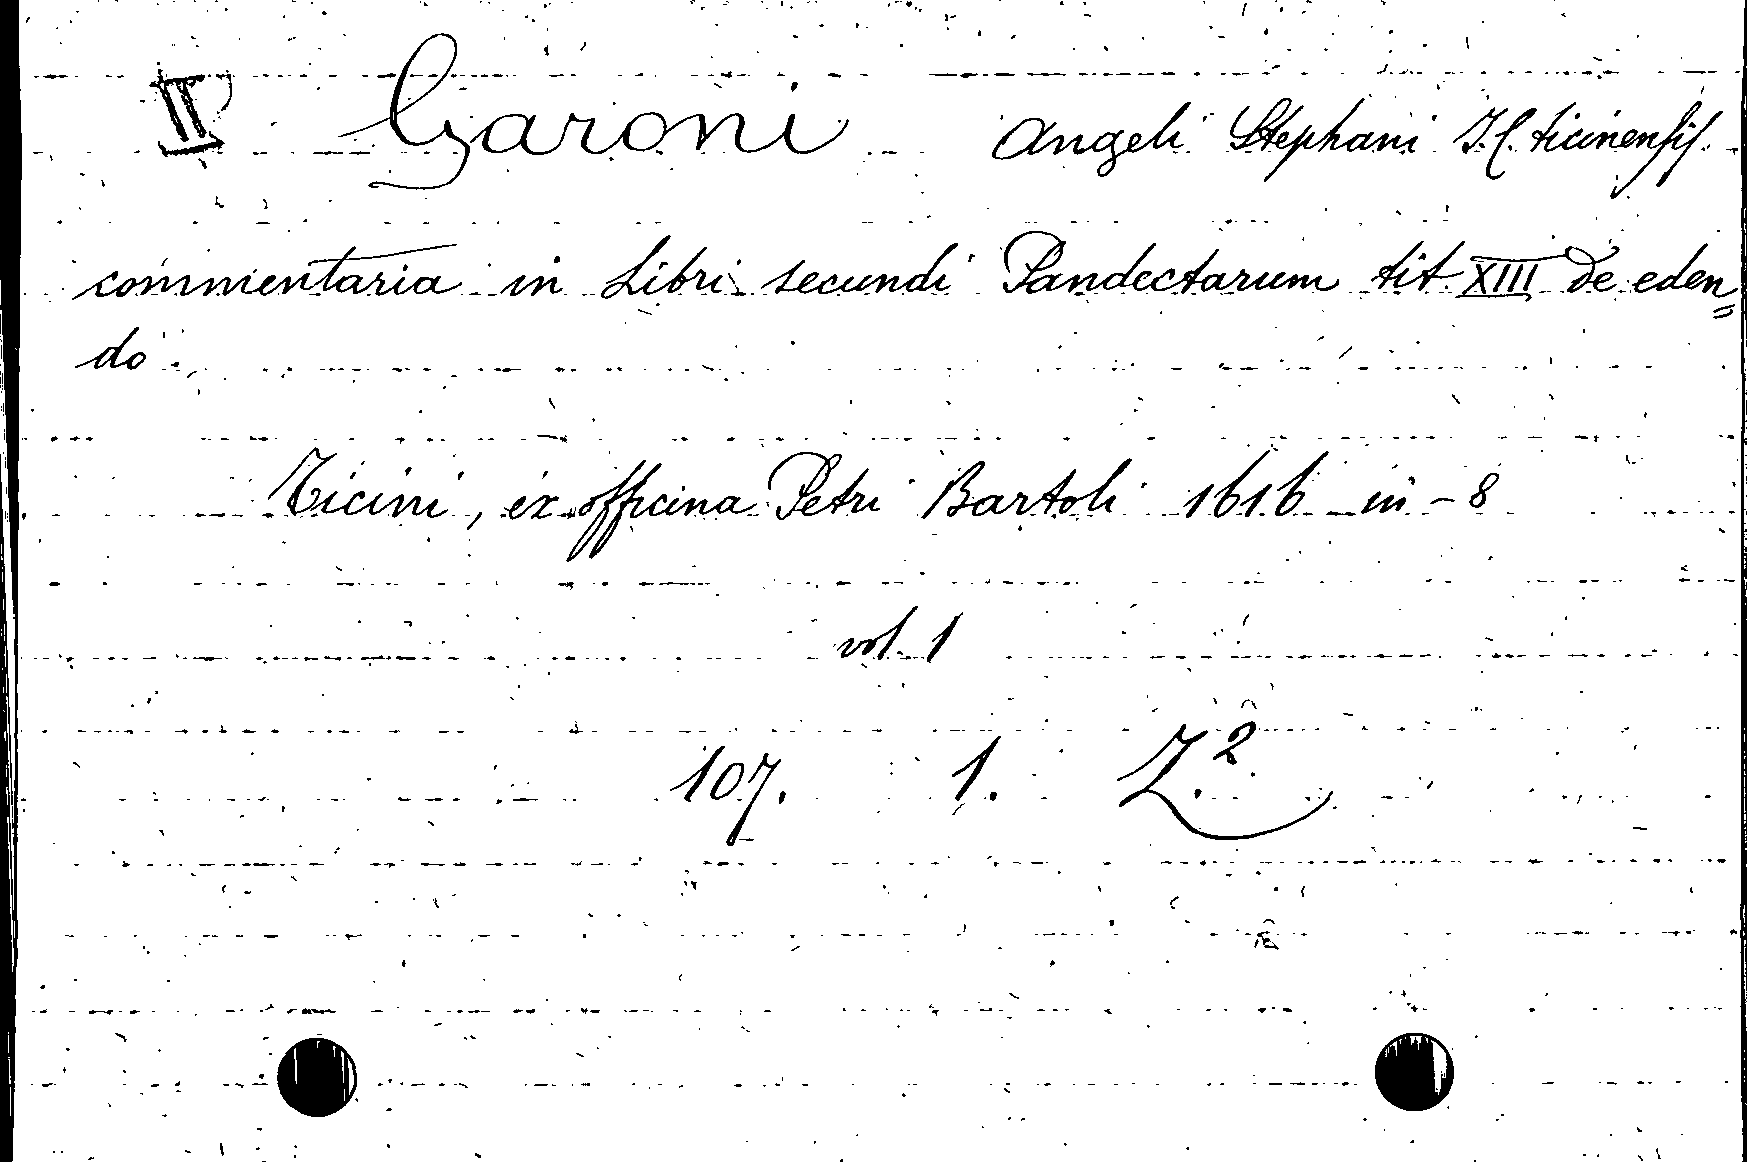 II Garoni Angeli Stephani J.C. ticinensis.
commentaria in Libri secundi Pandectarum tit XIII De eden=
do.
Ticini, ex officina Petri Bartoli 1616 in-8
vol. 1
107. 1. Z.2